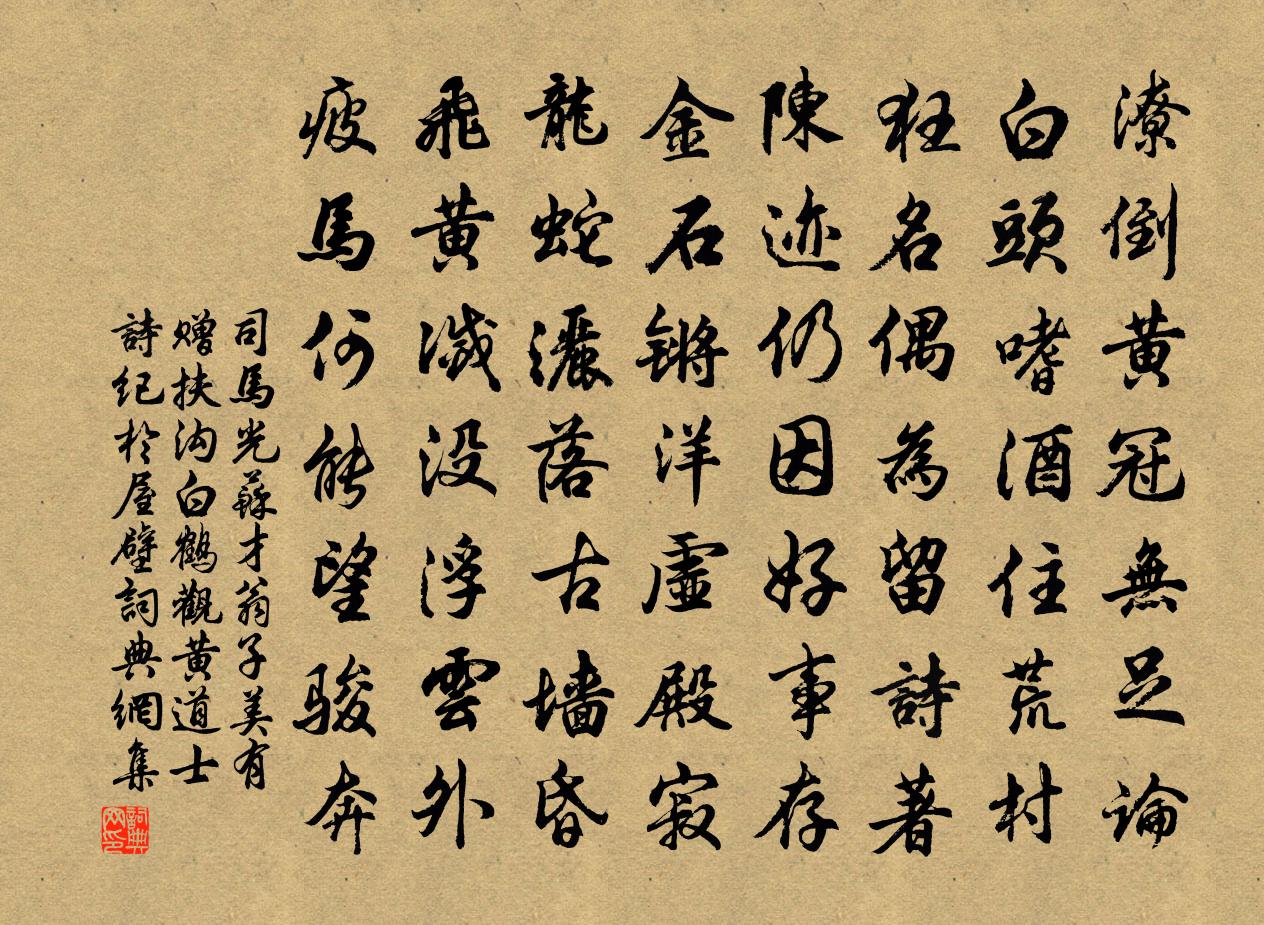 潦倒黄冠無足論
白頭嗜酒住荒村
狂名偶為留詩著
陳迹仍因好事存
金石锵洋虛殿寂
龍蛇灑落古墙昏
飛黄滅没浮雲外
疲馬何能望骏奔
司馬光蘇才翁子美有
赠扶沟白鶴觀黄道士
詩纪於屋壁詞典網集
詞典网印